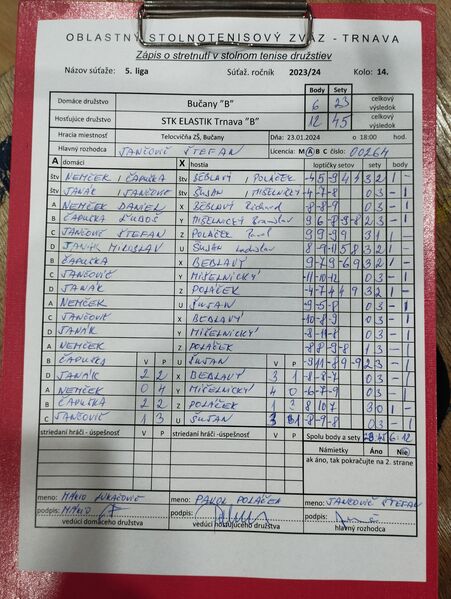 OBLASTNÝ STOLNOTENISOVÝ ZVÄZ - TRNAVA
Zápis o stretnutí v stolnom tenise družstiev
Názov súťaže: 5. liga Súťaž. ročník 2023/24 Kolo: 14.
Body Sety
Domáce družstvo Bučany "B" 6 23 celkový výsledok
Hosťujúce družstvo STK ELASTIK Trnava "B" 12 45 celkový výsledok
Hracia miestnosť Telocvičňa ZŠ, Bučany Dňa: 23.01.2024 o 18:00 hod.
Hlavný rozhodca JANČOVIČ ŠTEFAN Licencia: M A B C číslo: 00264
A domáci X hostia loptičky setov sety body
štv NEMČEK / ČAPUČKA štv BEDLAVÝ / POLÁČEK 3 2 1 -
štv JANÁK / JANČOVIČ štv ŠUJAN / MIŠELNICKÝ -4-7-8 0 3 - 1
A NEMČEK DANIEL X BEDLAVÝ Richard -8-8-9 0 3 - 1
B ČAPUČKA ĽUBOŠ Y MIŠELNICKÝ Branislav 9 6-8-9-8 2 3 - 1
C JANČOVIČ ŠTEFAN Z POLÁČEK 3 1 1 -
D JANÁK MILOSLAV U ŠUJAN Ladislav 3 2 1 -
B ČAPUČKA X BEDLAVÝ 3 2 1 -
C JANČOVIČ Y MIŠELNICKÝ 0 3 - 1
D JANÁK Z POLÁČEK 3 2 1 -
A NEMČEK U ŠUJAN -9-5-8 0 3 - 1
C JANČOVIČ X BEDLAVÝ -10-8-9 0 3 - 1
D JANÁK Y MIČELNICKÝ 0 3 - 1
A NEMČEK Z POLÁČEK -8 8-9-8 1 3 - 1
B ČAPUČKA V P U ŠUJAN V P 2 3 - 1
D JANÁK 2 2 X BEDLAVÝ 3 1 0 3 - 1
A NEMČEK 0 4 Y MIČELNICKÝ 4 0 -6-7-9 0 3 - 1
B ČAPUČKA 2 2 Z POLÁČEK 1 3 8 10 7 3 0 1 -
C JANČOVIČ 1 3 U ŠUJAN 3 1 -8-9-8 0 3 - 1
striedaní hráči - úspešnosť V P striedaní hráči - úspešnosť V P Spolu body a sety 23 45 6 - 12
Námietky Áno Nie
ak áno, tak pokračujte na 2. strane
meno: MÁRIO LUKAČOVIČ meno: PAVOL POLÁČEK meno: JANČOVIČ ŠTEFAN
podpis: podpis: podpis:
vedúci domáceho družstva vedúci hosťujúceho družstva hlavný rozhodca